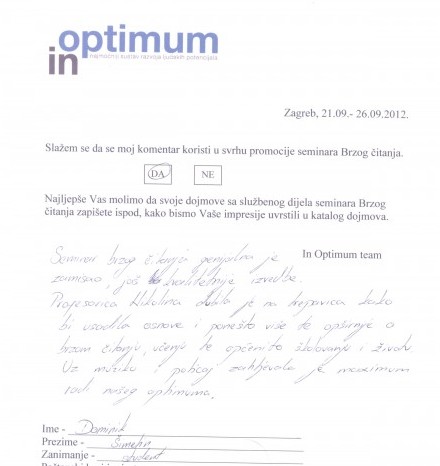 optimum
in najmoćniji sustav razvoja ljudskih potencijala
Zagreb, 21.09.- 26.09.2012.
Slažem se da se moj komentar koristi u svrhu promocije seminara Brzog čitanja.
DA NE
Najljepše Vas molimo da svoje dojmove sa službenog dijela seminara Brzog
čitanja zapišete ispod, kako bismo Vaše impresije uvrstili u katalog dojmova.
In Optimum team
Seminar brzog čitanja genijalna je
zamisao, još kvalitetnije izvedbe.
Profesorica Nikolina dala je na
bi usadila osnove i ponešto više te opširnije o
brzom čitanju, učenju te općenito školovanju i životu.
Uz muziku i zahtjevala je maximum
radi našeg optimuma.
Ime - Dominik
Prezime - Šimetin
Zanimanje - student